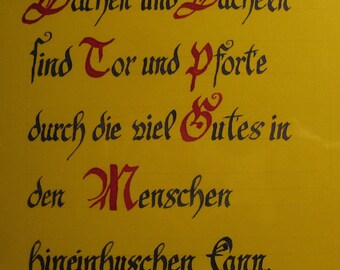 Lachen und Lächeln
sind Tor und Pforte
durch die viel Gutes in
den Menschen
hineinhuschen kann.